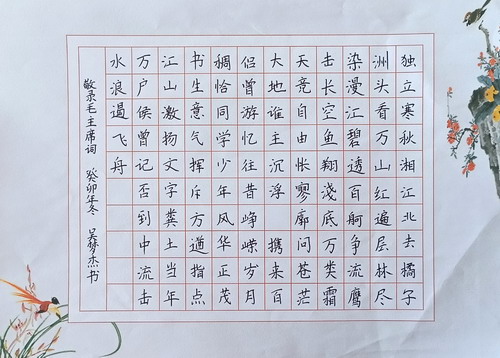 独立寒秋湘江北去橘子
洲头看万山红遍层林尽
染漫江碧透百舸争流鹰
击长空鱼翔淺底万类霜
天竞自由怅廖廓问苍茫
大地谁主沉浮 携来百
侣曾游忆往昔峥嵘岁月
稠恰同学少年风华正茂
书生意气挥斥方遒指点
江山激扬文字粪土当年
万户侯曾记否到中流击
水浪遏飞舟
敬录毛主席词 癸卯年冬 吴梦杰书